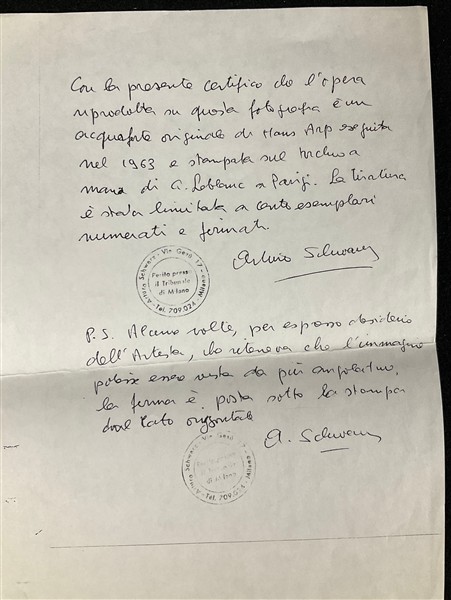 Con la presente certifico che l'opera
riprodotta su questa fotografia è un'
acquaforte originale di Hans Arp eseguita
nel 1963 e stampata sul torchio a
mano di G. Leblanc a Parigi. La tiratura
è stata limitata a cento esemplari
numerati e firmati.
Arturo Schwarz
Arturo Schwarz - Via Gesù 17 - Milano - Tel. 709.024
Perito presso
il Tribunale
di Milano
P.S. Alcune volte, per espresso desiderio
dell'Artista, che riteneva che l'immagine
potesse essere vista da più angolature,
la firma è posta sotto la stampa
dal lato orizzontale
A. Schwarz
Arturo Schwarz - Via Gesù - Tel. 709.024